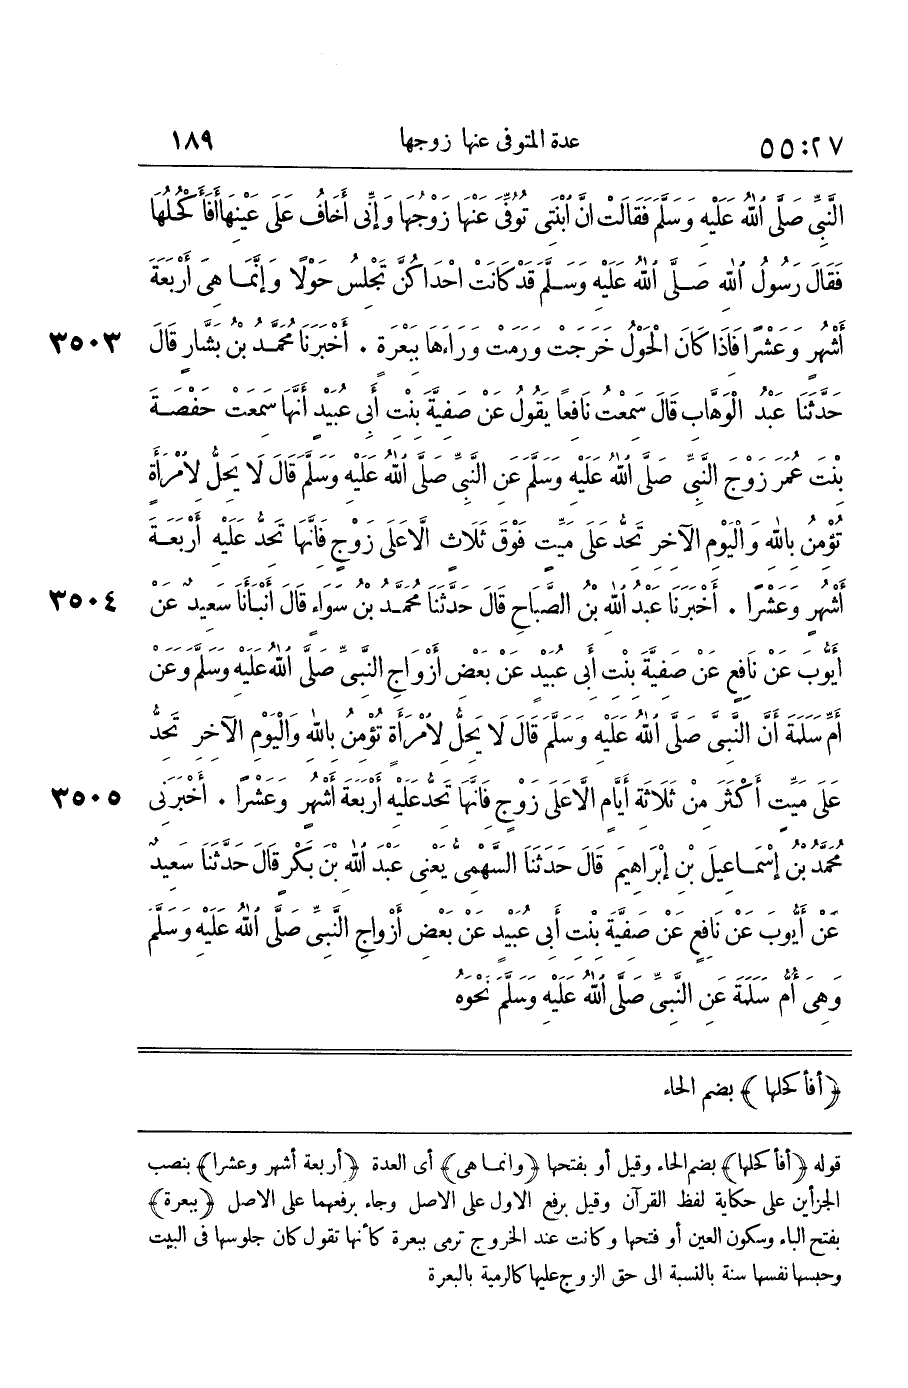 ٥٥:٢٧ عدة المتوفى عنها زوجها ١٨٩
النَّبِىِّ صَلَّى اللهُ عَلَيْهِ وَسَلَّمَ فَقَالَتْ انَّ ابْنَتِى تُوُفِّىَ عَنْهَا زَوْجُهَا وَإِنِّى أَخَافُ عَلَى عَيْنِهَا أَفَأَكْحُلُهَا
فَقَالَ رَسُولُ اللهِ صَلَّى اللهُ عَلَيْهِ وَسَلَّمَ قَدْ كَانَتْ احْدَاكُنَّ تَجْلِسُ حَوْلًا وَإِنَّمَا هِىَ أَرْبَعَةَ
أَشْهُرٍ وَعَشْرًا فَاذَا كَانَ الْحَوْلُ خَرَجَتْ وَرَمَتْ وَرَاءَهَا بِبَعْرَةٍ . أَخْبَرَنَا مُحَمَّدُ بْنُ بَشَّارٍ قَالَ ٣٥٠٣
حَدَّثَنَا عَبْدُ الْوَهَّابِ قَالَ سَمِعْتُ نَافِعًا يَقُولُ عَنْ صَفِيَّةَ بِنْتِ أَبِى عُبَيْدٍ أَنَّهَا سَمِعَتْ حَفْصَةَ
بِنْتَ عُمَرَ زَوْجَ النَّبِىِّ صَلَّى اللهُ عَلَيْهِ وَسَلَّمَ عَنِ النَّبِىِّ صَلَّى اللهُ عَلَيْهِ وَسَلَّمَ قَالَ لَا يَحِلُّ لِامْرَأَةٍ
تُؤْمِنُ بِاللهِ وَالْيَوْمِ الْآخِرِ تَحِدُّ عَلَى مَيِّتٍ فَوْقَ ثَلَاثٍ الَّا عَلَى زَوْجٍ فَانَّهَا تَحِدُّ عَلَيْهِ أَرْبَعَةَ
أَشْهُرٍ وَعَشْرًا . أَخْبَرَنَا عَبْدُ اللهِ بْنُ الصَّبَّاحِ قَالَ حَدَّثَنَا مُحَمَّدُ بْنُ سَوَاءٍ قَالَ أَنْبَأَنَا سَعِيدٌ عَنْ ٣٥٠٤
أَيُّوبَ عَنْ نَافِعٍ عَنْ صَفِيَّةَ بِنْتِ أَبِى عُبَيْدٍ عَنْ بَعْضِ أَزْوَاجِ النَّبِىِّ صَلَّى اللهُ عَلَيْهِ وَسَلَّمَ وَعَنْ
أُمِّ سَلَمَةَ أَنَّ النَّبِىَّ صَلَّى اللهُ عَلَيْهِ وَسَلَّمَ قَالَ لَا يَحِلُّ لِامْرَأَةٍ تُؤْمِنُ بِاللهِ وَالْيَوْمِ الْآخِرِ تَحِدُّ
عَلَى مَيِّتٍ أَكْثَرَ مِنْ ثَلَاثَةِ أَيَّامٍ الَّا عَلَى زَوْجٍ فَانَّهَا تَحِدُّ عَلَيْهِ أَرْبَعَةَ أَشْهُرٍ وَعَشْرًا . أَخْبَرَنِى ٣٥٠٥
مُحَمَّدُ بْنُ إِسْمَاعِيلَ بْنِ إِبْرَاهِيمَ قَالَ حَدَّثَنَا السَّهْمِىُّ يَعْنِى عَبْدَ اللهِ بْنَ بَكْرٍ قَالَ حَدَّثَنَا سَعِيدٌ
عَنْ أَيُّوبَ عَنْ نَافِعٍ عَنْ صَفِيَّةَ بِنْتِ أَبِى عُبَيْدٍ عَنْ بَعْضِ أَزْوَاجِ النَّبِىِّ صَلَّى اللهُ عَلَيْهِ وَسَلَّمَ
وَهِىَ أُمُّ سَلَمَةَ عَنِ النَّبِىِّ صَلَّى اللهُ عَلَيْهِ وَسَلَّمَ نَحْوَهُ
﴿أفأكحلها﴾ بضم الحاء
قوله ﴿أفأكحلها﴾ بضم الحاء وقيل أو بفتحها ﴿وانما هى﴾ أى العدة ﴿أربعة أشهر وعشرا﴾ بنصب
الجزأين على حكاية لفظ القرآن وقيل برفع الاول على الاصل وجاء برفعهما على الاصل ﴿ببعرة﴾
بفتح الباء وسكون العين أو فتحها وكانت عند الخروج ترمى ببعرة كأنها تقول كان جلوسها فى البيت
وحبسها نفسها سنة بالنسبة الى حق الزوج عليها كالرمية بالبعرة